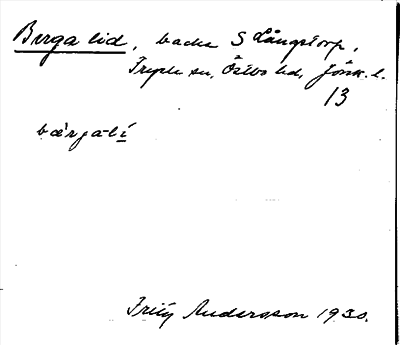 Berga lid, backe S Långstorp,
Tryde sn, Östbo hd, Jönk. l.
13
bærga-lí
Fritz Andersson 1930.